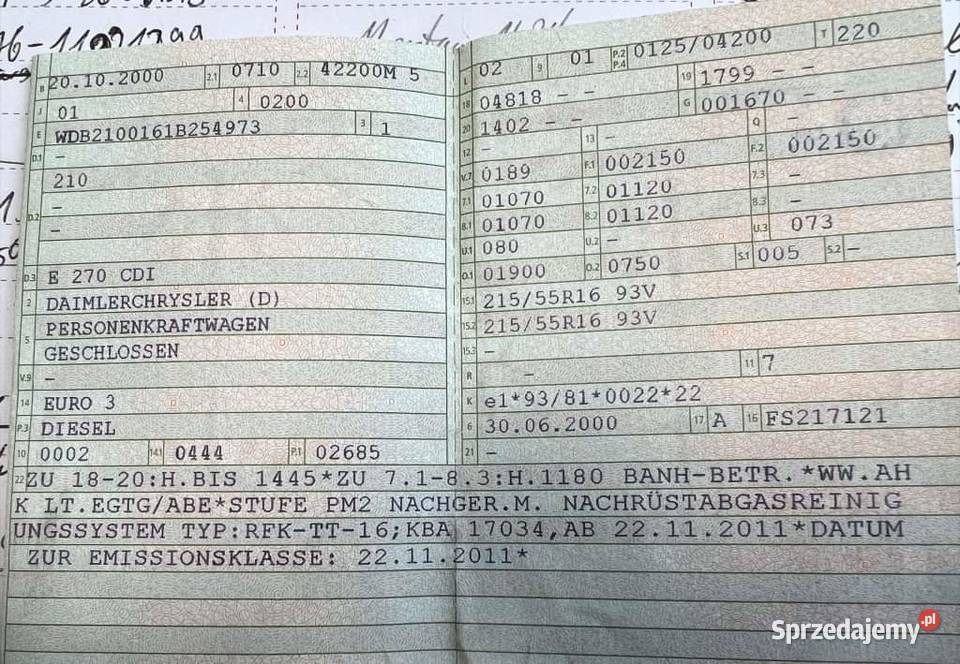 B 20.10.2000 2.1 0710 2.2 42200M 5
J 01 4 0200
E WDB2100161B254973 3 1
D.1 –
210
D.2 –
–
D.3 E 270 CDI
2 DAIMLERCHRYSLER (D)
5 PERSONENKRAFTWAGEN
GESCHLOSSEN
V.9 –
14 EURO 3
P.3 DIESEL
10 0002 14.1 0444 P.1 02685
L 02 9 01 P.2 P.4 0125/04200 T 220
18 04818 – – 19 1799 – –
20 1402 – – G 001670 – –
12 – 13 – Q –
V.7 0189 F.1 002150 F.2 002150
7.1 01070 7.2 01120 7.3 –
8.1 01070 8.2 01120 8.3 –
U.1 080 U.2 – U.3 073
O.1 01900 O.2 0750 S.1 005 S.2 –
15.1 215/55R16 93V
15.2 215/55R16 93V
15.3 –
R – 11 7
K e1*93/81*0022*22
6 30.06.2000 17 A 16 FS217121
21 –
22 ZU 18-20:H.BIS 1445*ZU 7.1-8.3:H.1180 BANH-BETR.*WW.AH
K LT.EGTG/ABE*STUFE PM2 NACHGER.M. NACHRÜSTABGASREINIG
UNGSSYSTEM TYP:RFK-TT-16;KBA 17034,AB 22.11.2011*DATUM
ZUR EMISSIONSKLASSE: 22.11.2011*
Sprzedajemy.pl